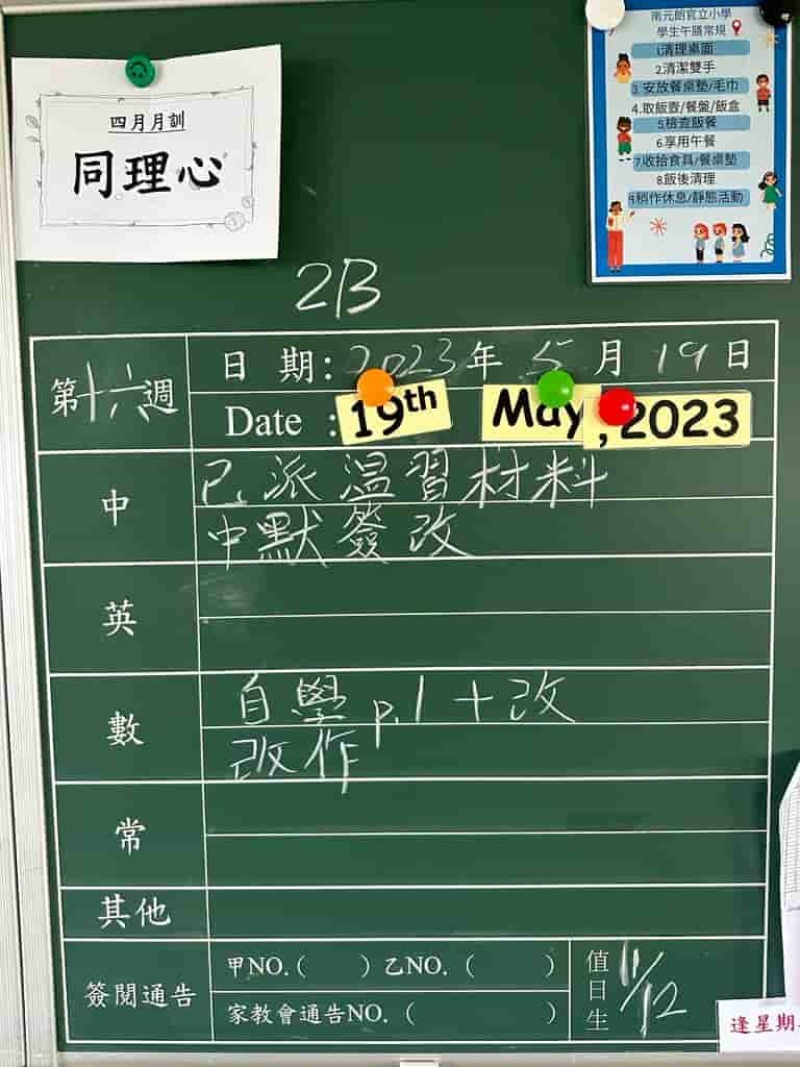 四月月訓
同理心
南元朗官立小學
學生午膳常規
1.清理桌面
2.清潔雙手
3.安放餐桌墊/毛巾
4.取飯壺/餐盤/飯盒
5.檢查飯餐
6.享用午餐
7.收拾食具/餐桌墊
8.飯後清理
9.稍作休息/靜態活動
2B
第十六週
日期：2023年5月19日
Date : 19th May, 2023
中
已派溫習材料
中默簽改
英
數
自學 p.1 + 改
改作
常
其他
簽閱通告
甲NO.( ) 乙NO. ( )
家教會通告NO. ( )
值日生 11/12
逢星期